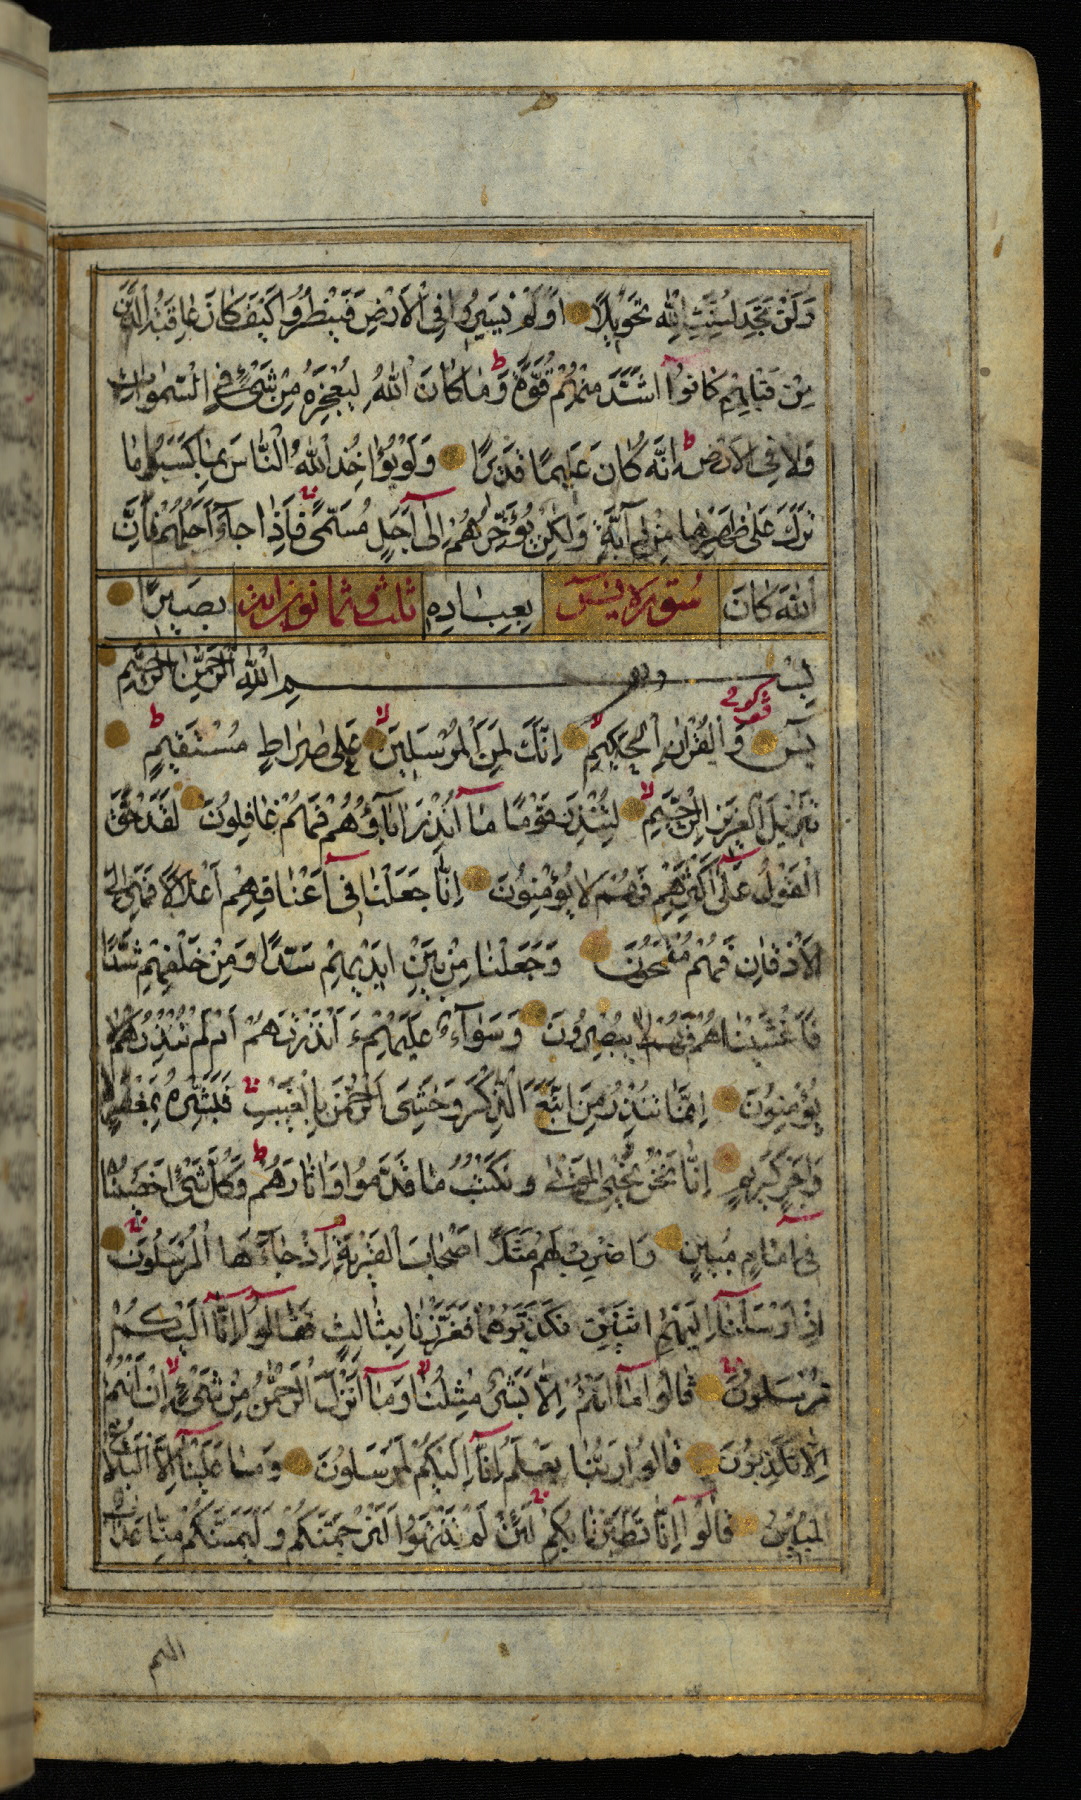 وَلَنْ تَجِدَ لِسُنَّتِ اللهِ تَحْوِيلًا اَوَلَمْ يَسِيرُوا فِي الْاَرْضِ فَيَنْظُرُوا كَيْفَ كَانَ عَاقِبَةُ الَّذِينَ
مِنْ قَبْلِهِمْ كَانُوٓا اَشَدَّ مِنْهُمْ قُوَّةً ط وَمَا كَانَ اللهُ لِيُعْجِزَهُ مِنْ شَيْءٍ فِي السَّمٰوَاتِ
وَلَا فِي الْاَرْضِ ط اِنَّهُ كَانَ عَلِيمًا قَدِيرًا وَلَوْ يُؤَاخِذُ اللهُ النَّاسَ بِمَا كَسَبُوا مَا
تَرَكَ عَلٰى ظَهْرِهَا مِنْ دَآبَّةٍ وَلٰكِنْ يُؤَخِّرُهُمْ اِلٰٓى اَجَلٍ مُسَمًّى فَاِذَا جَآءَ اَجَلُهُمْ فَاِنَّ
اللهَ كَانَ سُورَة يٰسٓ بِعِبَادِهِ ثلث وثمانون اية بَصِيرًا
بِسْمِ اللهِ الرَّحْمٰنِ الرَّحِيمِ
يٰسٓ وَالْقُرْاٰنِ الْحَكِيمِ لا اِنَّكَ لَمِنَ الْمُرْسَلِينَ لا عَلٰى صِرَاطٍ مُسْتَقِيمٍ ط
تَنْزِيلَ الْعَزِيزِ الرَّحِيمِ لا لِتُنْذِرَ قَوْمًا مَآ اُنْذِرَ اٰبَآؤُهُمْ فَهُمْ غَافِلُونَ لَقَدْ حَقَّ
الْقَوْلُ عَلٰٓى اَكْثَرِهِمْ فَهُمْ لَا يُؤْمِنُونَ اِنَّا جَعَلْنَا فِيٓ اَعْنَاقِهِمْ اَغْلَالًا فَهِيَ اِلَى
الْاَذْقَانِ فَهُمْ مُقْمَحُونَ وَجَعَلْنَا مِنْ بَيْنِ اَيْدِيهِمْ سَدًّا وَمِنْ خَلْفِهِمْ سَدًّا
فَاَغْشَيْنَاهُمْ فَهُمْ لَا يُبْصِرُونَ وَسَوَآءٌ عَلَيْهِمْ ءَاَنْذَرْتَهُمْ اَمْ لَمْ تُنْذِرْهُمْ لَا
يُؤْمِنُونَ اِنَّمَا تُنْذِرُ مَنِ اتَّبَعَ الذِّكْرَ وَخَشِيَ الرَّحْمٰنَ بِالْغَيْبِ فَبَشِّرْهُ بِمَغْفِرَةٍ
وَاَجْرٍ كَرِيمٍ اِنَّا نَحْنُ نُحْيِ الْمَوْتٰى وَنَكْتُبُ مَا قَدَّمُوا وَاٰثَارَهُمْ ط وَكُلَّ شَيْءٍ اَحْصَيْنَا
فِيٓ اِمَامٍ مُبِينٍ وَاضْرِبْ لَهُمْ مَثَلًا اَصْحَابَ الْقَرْيَةِ اِذْ جَآءَهَا الْمُرْسَلُونَ
اِذْ اَرْسَلْنَآ اِلَيْهِمُ اثْنَيْنِ فَكَذَّبُوهُمَا فَعَزَّزْنَا بِثَالِثٍ فَقَالُوٓا اِنَّآ اِلَيْكُمْ
مُرْسَلُونَ قَالُوا مَآ اَنْتُمْ اِلَّا بَشَرٌ مِثْلُنَا لا وَمَآ اَنْزَلَ الرَّحْمٰنُ مِنْ شَيْءٍ لا اِنْ اَنْتُمْ
اِلَّا تَكْذِبُونَ قَالُوا رَبُّنَا يَعْلَمُ اِنَّآ اِلَيْكُمْ لَمُرْسَلُونَ وَمَا عَلَيْنَآ اِلَّا الْبَلَاغُ
الْمُبِينُ قَالُوٓا اِنَّا تَطَيَّرْنَا بِكُمْ لَئِنْ لَمْ تَنْتَهُوا لَنَرْجُمَنَّكُمْ وَلَيَمَسَّنَّكُمْ مِنَّا عَذَابٌ
اليم